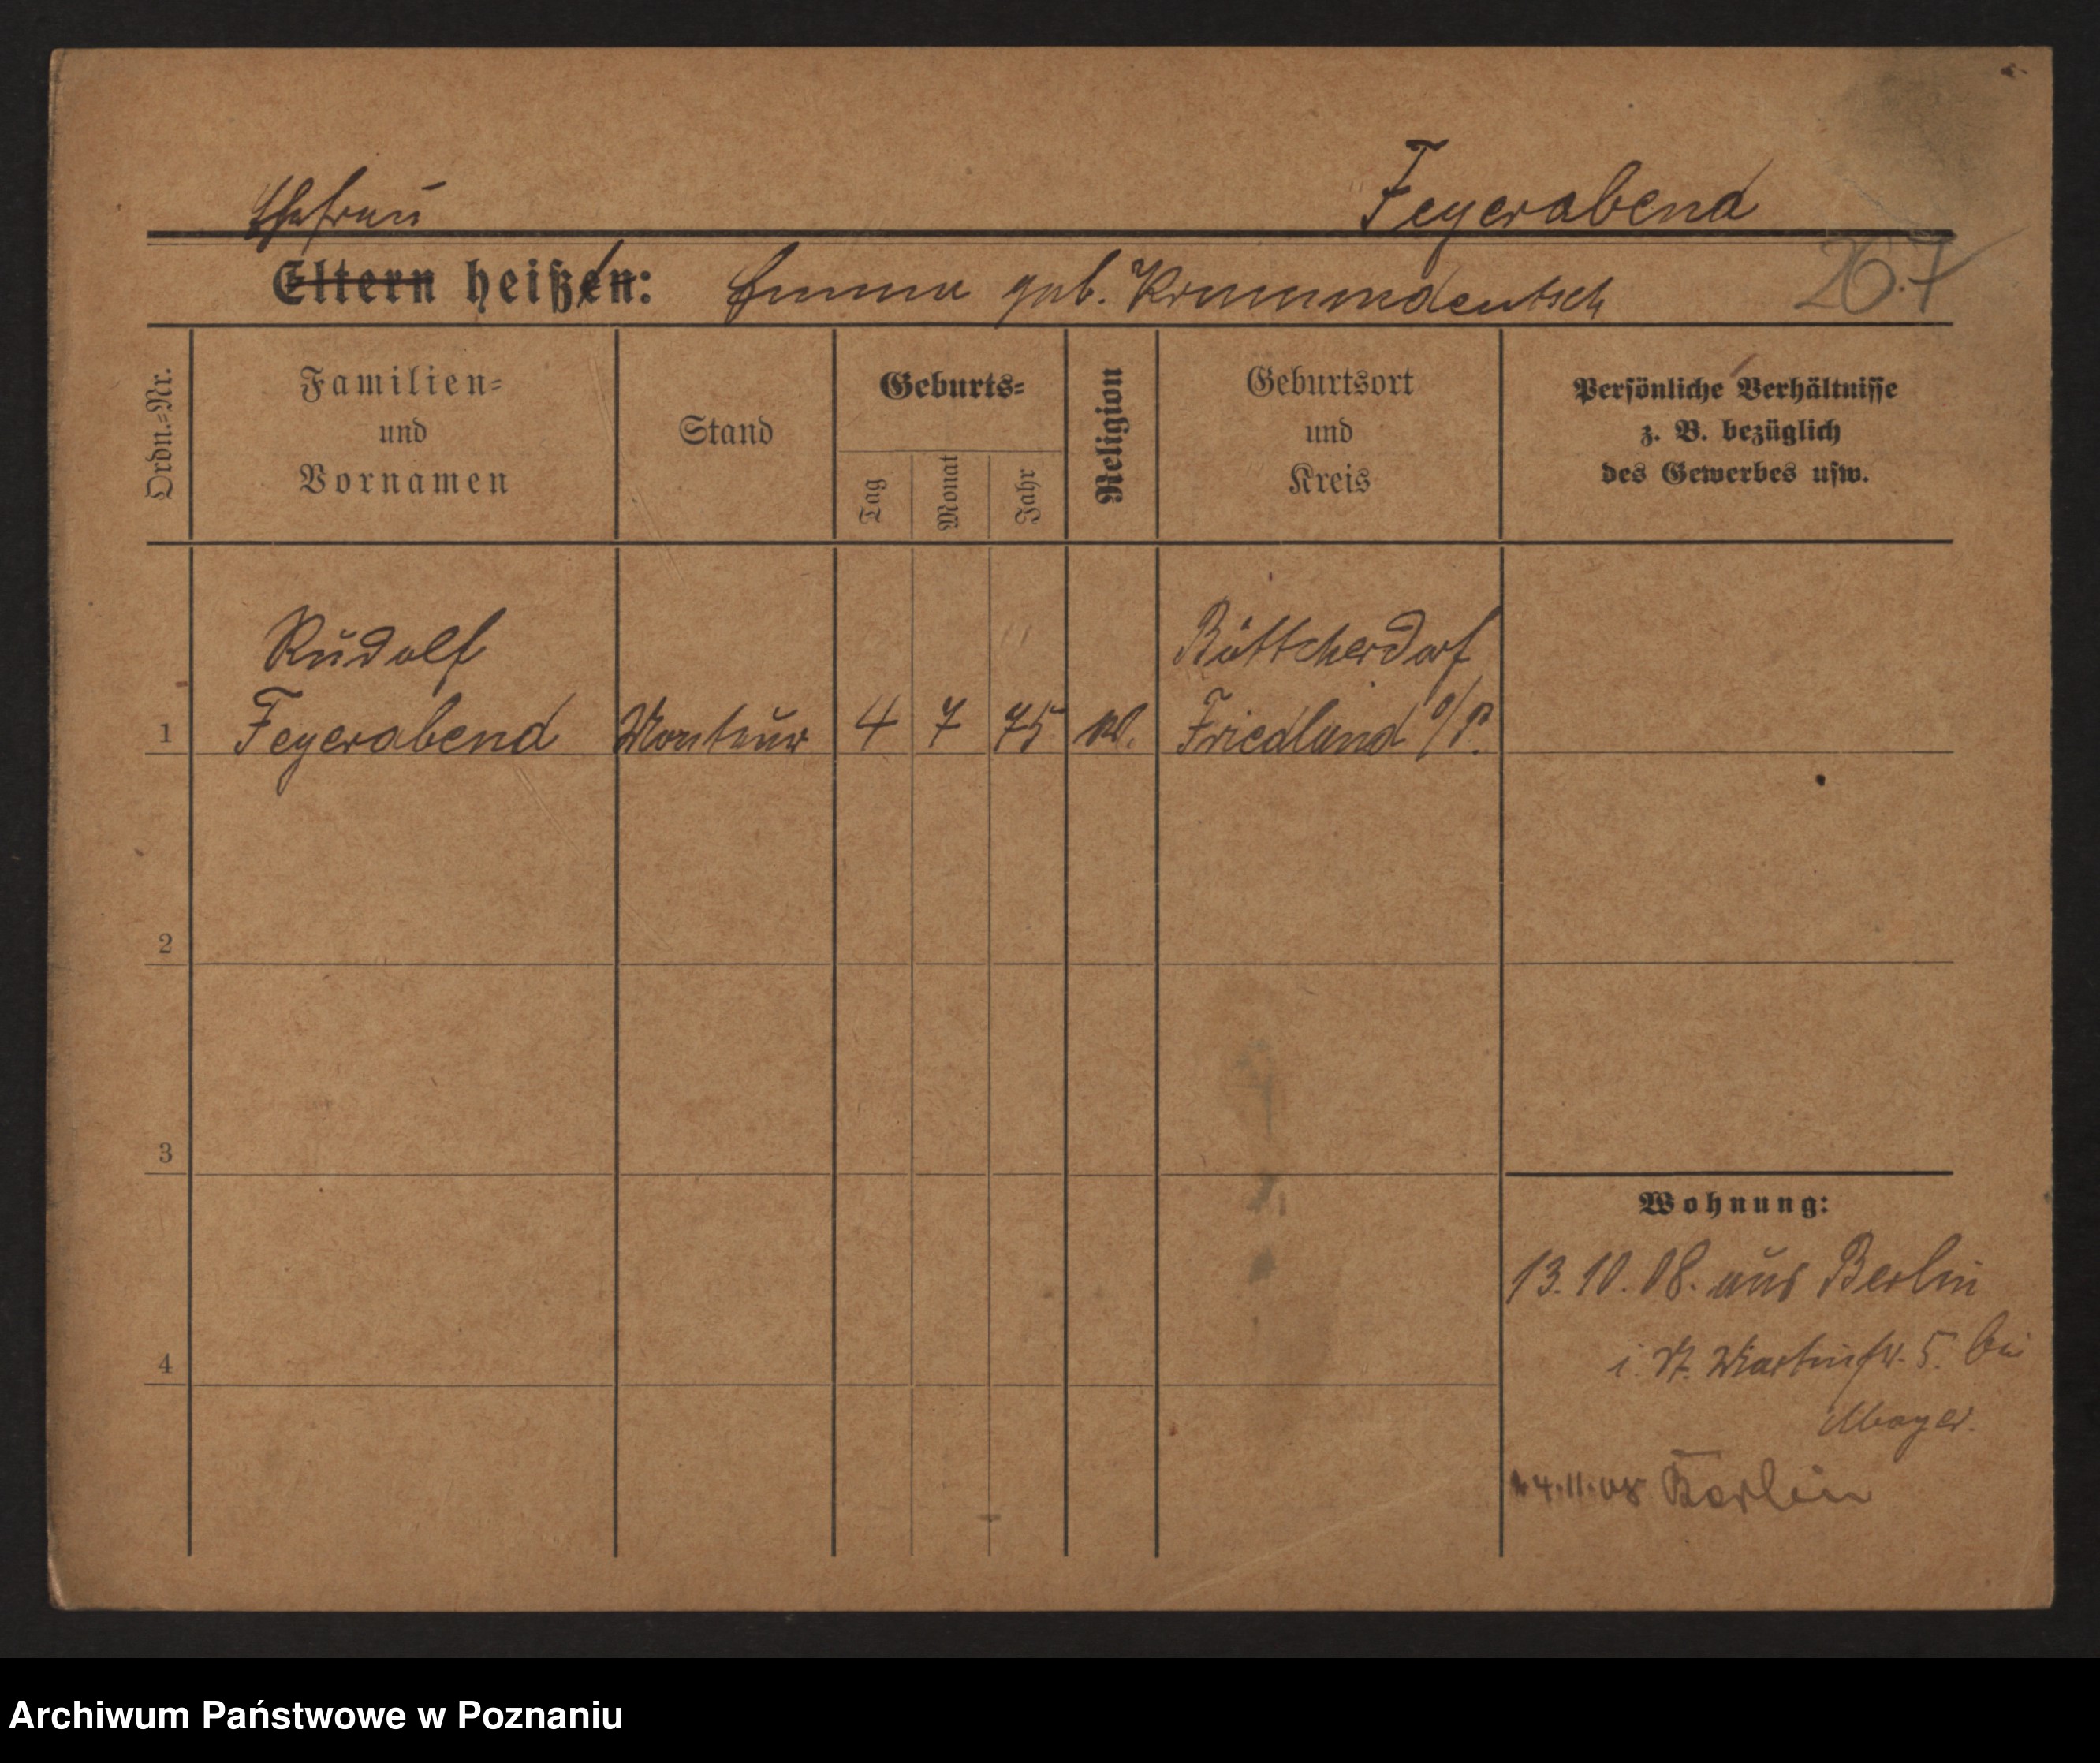 Ehefrau Feyerabend
Eltern heißen: Emma geb. Krummdeutsch 26.7
Ordn.-Nr.
Familien-
und
Vornamen
Stand
Geburts-
Tag
Monat
Jahr
Religion
Geburtsort
und
Kreis
Persönliche Verhältnisse
z. B. bezüglich
des Gewerbes usw.
Rudolf Böttcherdorf
1 Feyerabend Monteur 4 7 75 Friedland o/P.
2
3
4
Wohnung:
13.10.08. aus Berlin
i. St. Martinstr. 5. bei
Mayer.
4.11.08 Berlin
Archiwum Państwowe w Poznaniu